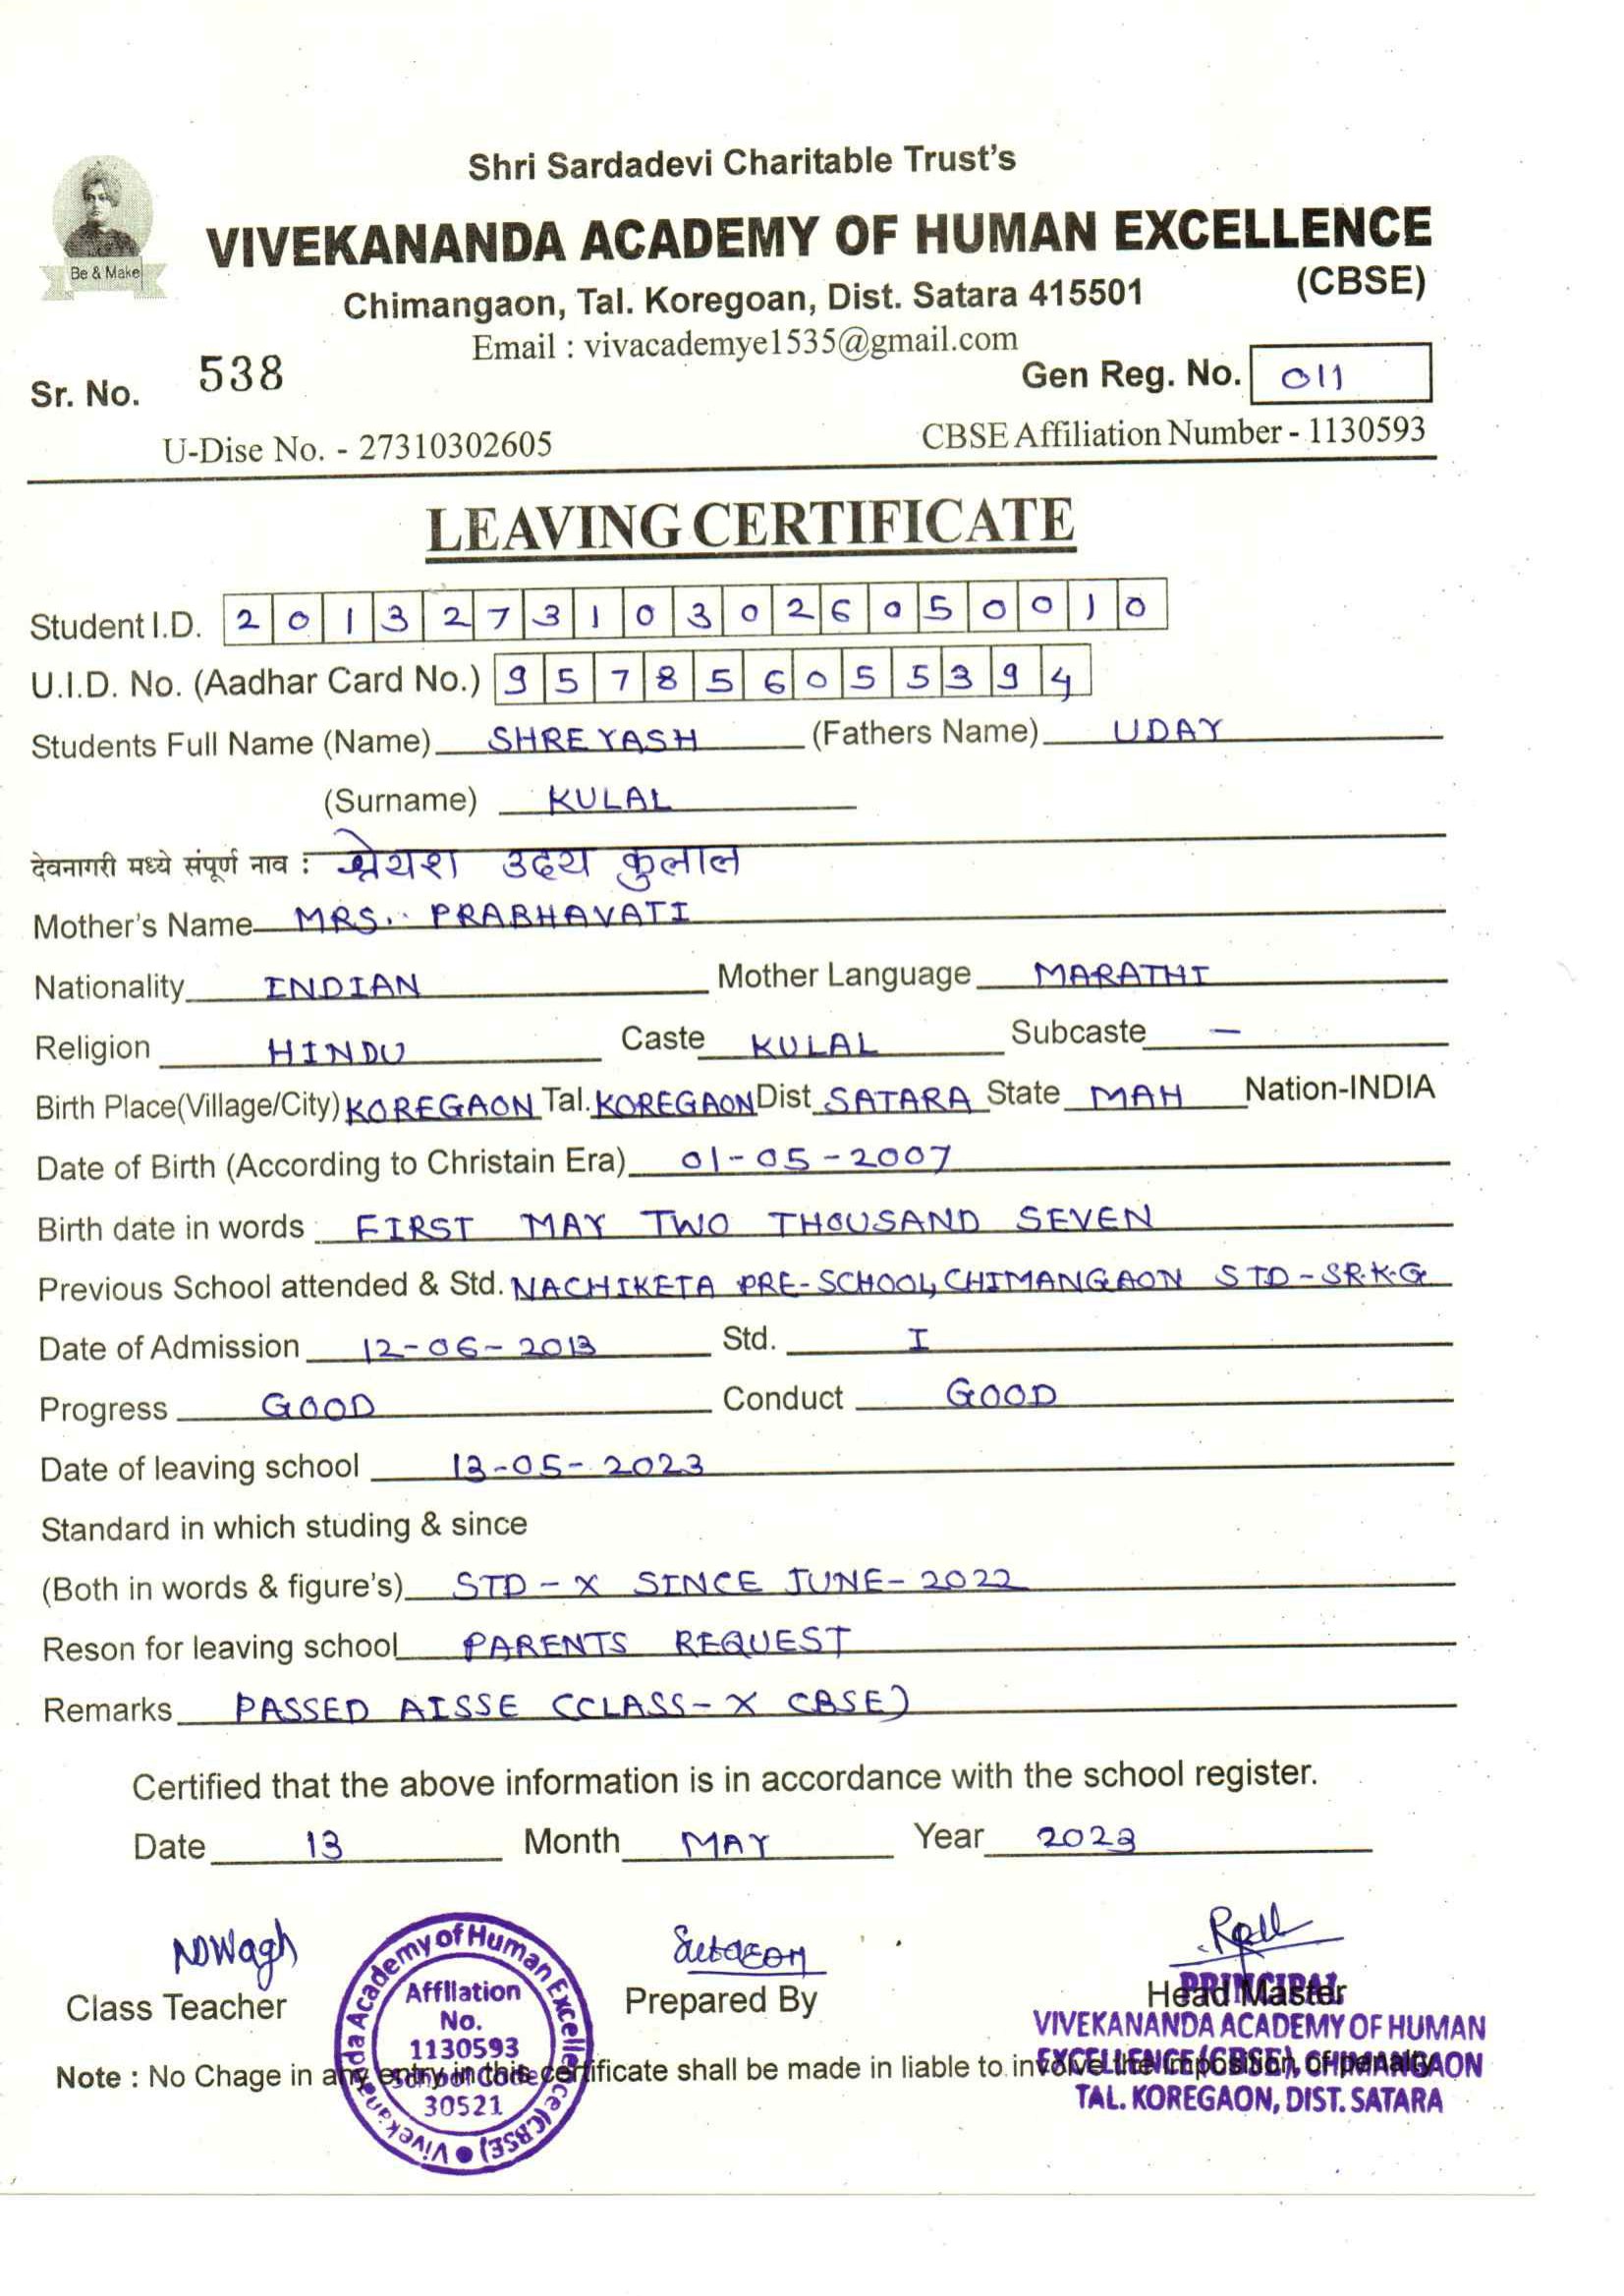 Shri Sardadevi Charitable Trust's
Be & Make
VIVEKANANDA ACADEMY OF HUMAN EXCELLENCE
(CBSE)
Chimangaon, Tal. Koregoan, Dist. Satara 415501
Email : vivacademye1535@gmail.com
Sr. No. 538 Gen Reg. No. 011
U-Dise No. - 27310302605 CBSE Affiliation Number - 1130593
LEAVING CERTIFICATE
Student I.D. 2013273103026050010
U.I.D. No. (Aadhar Card No.) 957856055394
Students Full Name (Name) SHREYASH (Fathers Name) UDAY
(Surname) KULAL
देवनागरी मध्ये संपूर्ण नाव : श्रेयश उदय कुलाल
Mother's Name MRS. PRABHAVATI
Nationality INDIAN Mother Language MARATHI
Religion HINDU Caste KULAL Subcaste —
Birth Place(Village/City) KOREGAON Tal. KOREGAON Dist SATARA State MAH Nation-INDIA
Date of Birth (According to Christain Era) 01-05-2007
Birth date in words FIRST MAY TWO THOUSAND SEVEN
Previous School attended & Std. NACHIKETA PRE-SCHOOL, CHIMANGAON STD-SR.K.G
Date of Admission 12-06-2013 Std. I
Progress GOOD Conduct GOOD
Date of leaving school 13-05-2023
Standard in which studing & since
(Both in words & figure's) STD-X SINCE JUNE-2022
Reson for leaving school PARENTS REQUEST
Remarks PASSED AISSE (CLASS-X CBSE)
Certified that the above information is in accordance with the school register.
Date 13 Month MAY Year 2023
NDWagh
Class Teacher Prepared By Head Master
PRINCIPAL
VIVEKANANDA ACADEMY OF HUMAN
EXCELLENCE (CBSE), CHIMANGAON
TAL. KOREGAON, DIST. SATARA
Note : No Chage in any entry in this certificate shall be made in liable to involve the imposition of penalty.
Vivekananda Academy of Human Excellence (CBSE)
Affiliation
No.
1130593
School Code
30521